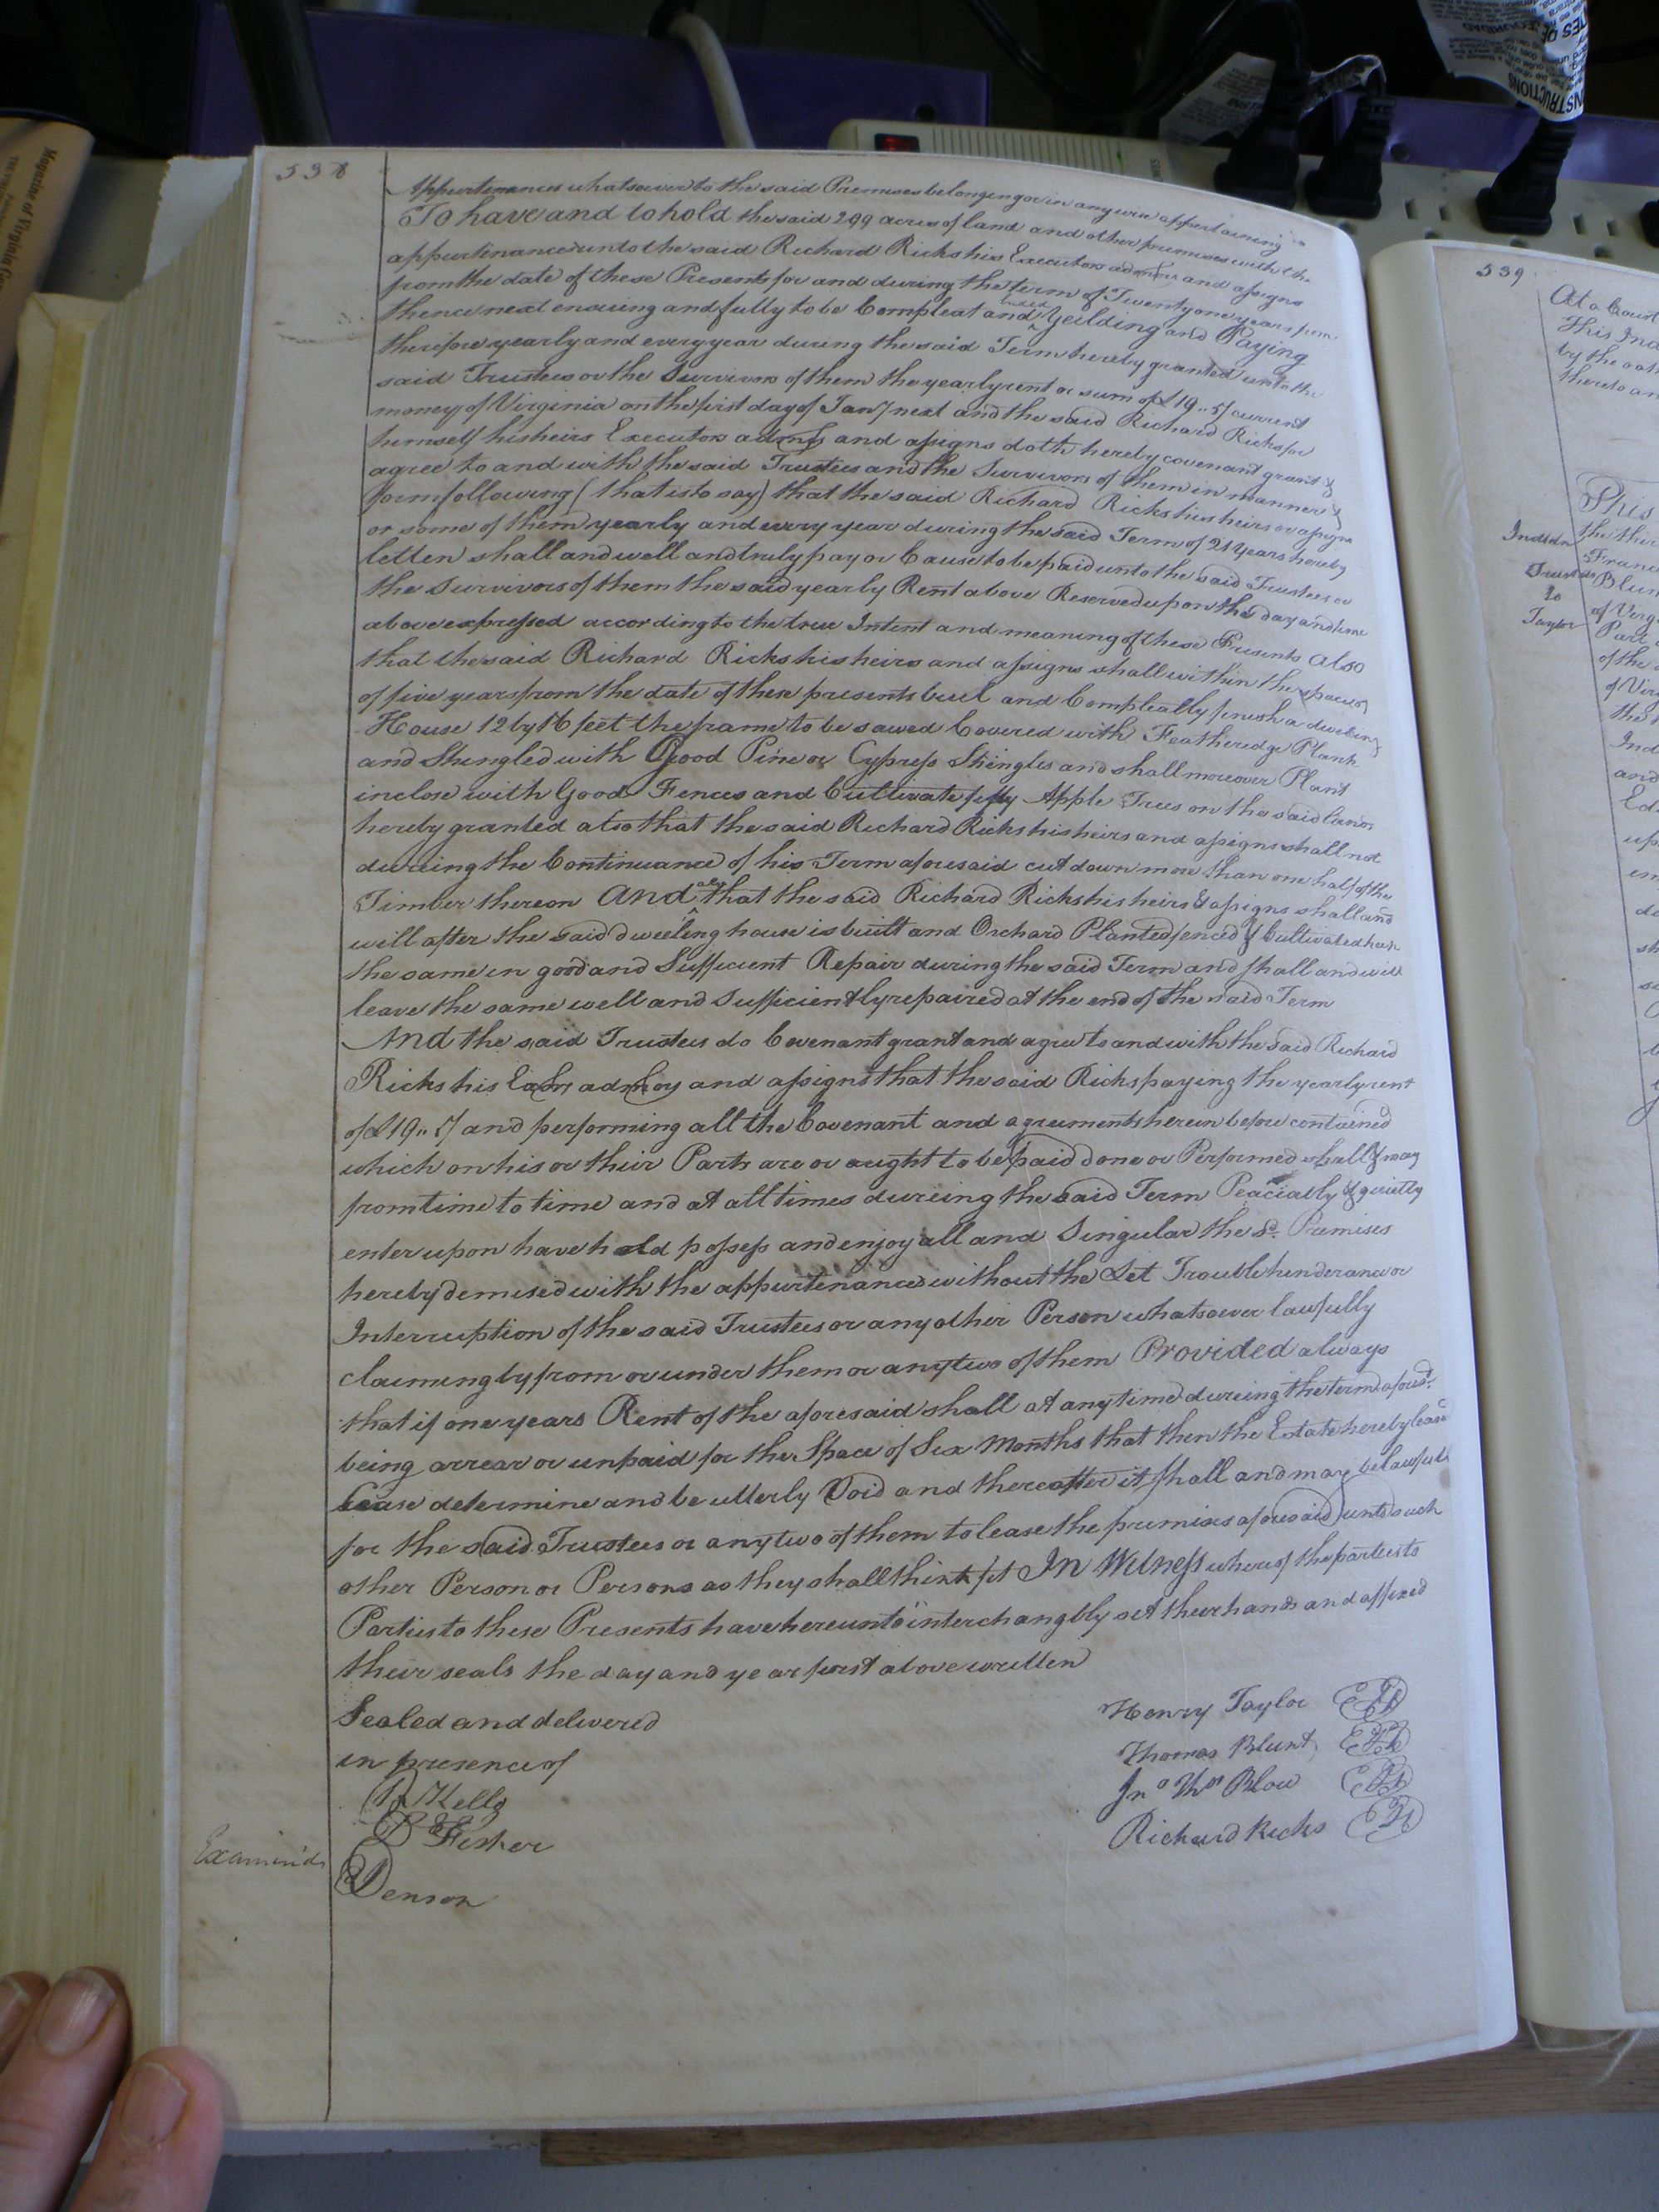 538
Appurtenances whatsoever to the said Premises belonging or in any wise appertaining
To have and to hold the said 299 acres of land and other premises with the
appurtenances unto the said Richard Ricks his Executors admrs and assigns
from the date of these Presents for and during the term of Twenty one years from
thence next ensuing and fully to be Compleat and ended Yeilding and Paying
therefore yearly and every year during the said Term hereby granted unto the
said Trustees or the Survivors of them the yearly rent or sum of £19..5/ current
money of Virginia on the first day of Jany next and the said Richard Ricks for
himself his heirs Executors admrs and assigns doth hereby covenant grant &
agree to and with the said Trustees and the Survivors of them in manner &
form following (that is to say) that the said Richard Ricks his heirs or assigns
or some of them yearly and every year during the said Term of 21 Years hereby
letten shall and well and truly pay or Cause to be paid unto the said Trustees or
the Survivors of them the said yearly Rent above Reserved upon the day and time
above expressed according to the true Intent and meaning of these Presents also
that the said Richard Ricks his heirs and assigns shall within the space
of five years from the date of these presents buil and Compleatly finish a dweling
House 12 by 16 feet the frame to be sawed Covered with Featheredge Plank
and Shingled with Good Pine or Cypress Shingles and shall moreover Plant
inclose with Good Fences and Cultivate fifty Apple Trees on the said lands
hereby granted also that the said Richard Ricks his heirs and assigns shall not
dureing the Continuance of his Term aforesaid cut down more than one half of the
Timber thereon And also that the said Richard Ricks his heirs & assigns shall and
will after the said dweeling house is built and Orchard Planted fenced & Cultivated keep
the same in good and Sufficient Repair during the said Term and shall and will
leave the same well and Sufficiently repaired at the end of the said Term
And the said Trustees do Covenant grant and agree to and with the said Richard
Ricks his Exrs admrs and assigns that the said Ricks paying the yearly rent
of £19..5/ and performing all the Covenant and agreements herein before contained
which on his or their Parts are or aught to be paid done or Performed shall & may
from time to time and at all times dureing the said Term Peaciably & quietly
enter upon have hold possess and enjoy all and Singular the sd. Premises
hereby demised with the appurtenances without the Let Trouble henderance or
Interruption of the said Trustees or any other Person whatsoever lawfully
claiming by from or under them or any two of them Provided always
that if one years Rent of the aforesaid shall at any time dureing the term aforesd.
being arrear or unpaid for the Space of Six Months that then the Estate hereby leased
Cease determine and be utterly Void and thereafter it shall and may be lawfull
for the said Trustees or any two of them to lease the premises aforesaid unto such
other Person or Persons as they shall think fit In Witness whereof the parteis to
Parties to these Presents have hereunto interchangbly set their hands and affixed
their seals the day and year first above written
Sealed and delivered
in presence of
Kello
Fisher
Denson
Henry Taylor
Thomas Blunt
Jno Thos Blow
Richard Ricks
Examined
539
At a Court
This Ind
by the oath
thereto an
This
the thir
Indian
Trustees
to
Taylor
Franc
Blun
of Virg
Part
of the
of Vir
the
Ind
and